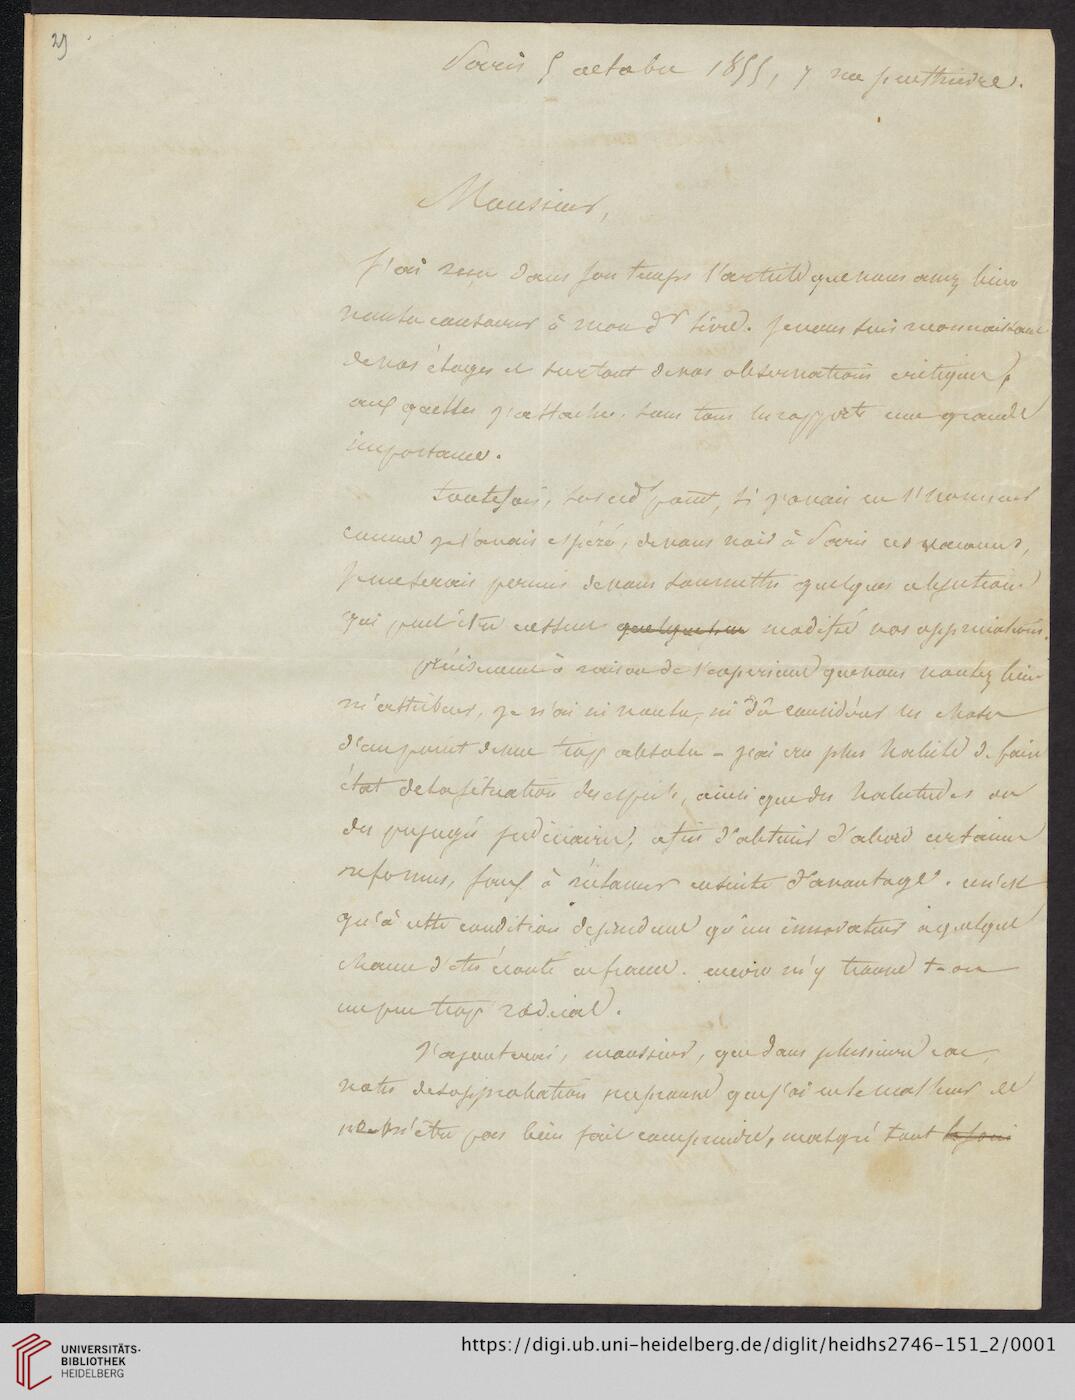 29
Paris 5 octobre 1855, 7 rue penthièvre.
Monsieur,
J'ai reçu dans son temps l'article que vous avez bien
voulu consacrer à mon dr livre. Je vous suis reconnaissant
de vos éloges et surtout de vos observations critiques,
auxquelles j'attache, sous tous les rapports une grande
importance.
toutefois, sur ce point, si j'avais eu l'honneur
comme je l'avais espéré, de vous voir à Paris ces vacances,
je me serais permis de vous soumettre quelques objections
qui peut être eussent quelque peu modifié vos appréciations.
précisément à raison de l'expérience que vous voulez bien
m'attribuer, je n'ai ni voulu, ni dû considérer les choses
d'un point de vue trop absolu - j'ai cru plus habile de faire
état de la situation des esprits, ainsi que des habitudes ou
des préjugés judiciaires, afin d'obtenir d'abord certaines
reformes, sauf à réclamer ensuite d'avantage. ce n'est
qu'à cette condition dépendue qu'un innovateur a quelque
chance d'être écouté en france. encore m'y trouve t-on
un peu trop radical.
J'ajouterai, monsieur, que dans plusieurs cas,
votre désapprobation me prouve que j'ai eu le malheur de
ne m'être pas bien fait comprendre, malgré tout le soin
UNIVERSITÄTS-
BIBLIOTHEK
HEIDELBERG
https://digi.ub.uni-heidelberg.de/diglit/heidhs2746-151_2/0001